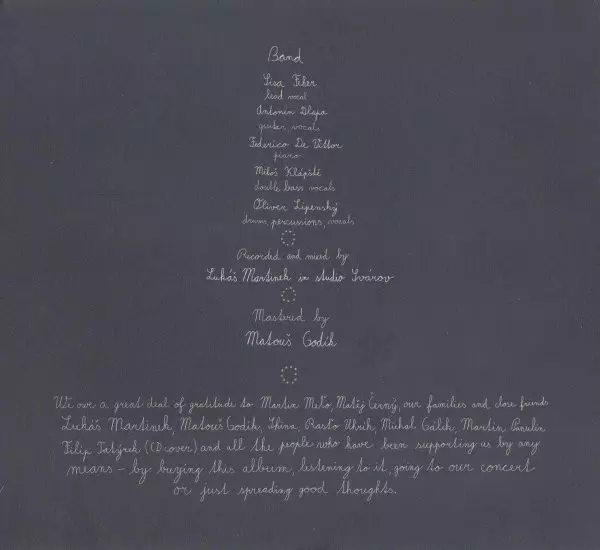 Band
Lisa Feher
lead vocal
Antonín Dlapa
guitar, vocals
Federico De Vittor
piano
Miloš Klápště
double bass vocals
Oliver Lipenský
drums, percussions, vocals
Recorded and mixed by
Lukáš Martinek in studio Svárov
Mastered by
Matouš Godík
We owe a great deal of gratitude to Martin Meľo, Matěj Černý, our families and close friends
Lukáš Martinek, Matouš Godík, Rasťo Uhrík, Michal Gálik, Martin
Filip (CD cover) and all the people who have been supporting us by any
means – by buying this album, listening to it, going to our concert
or just spreading good thoughts.